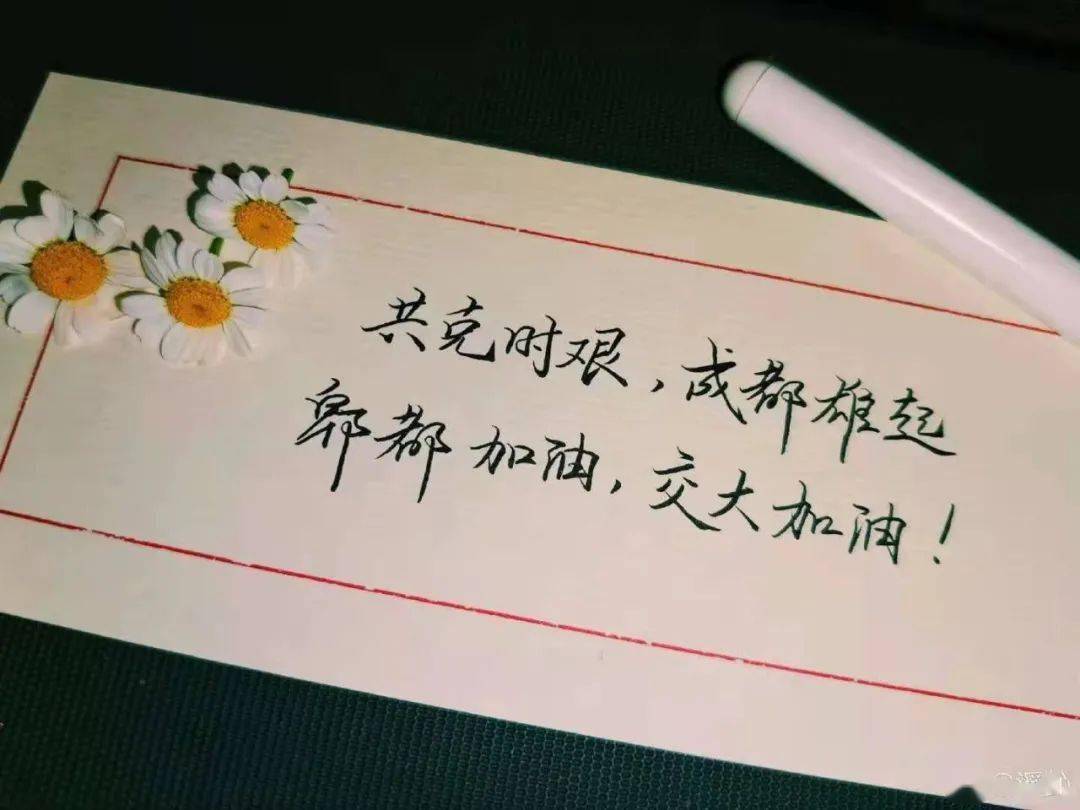 共克时艰，成都雄起
郫都加油，交大加油！